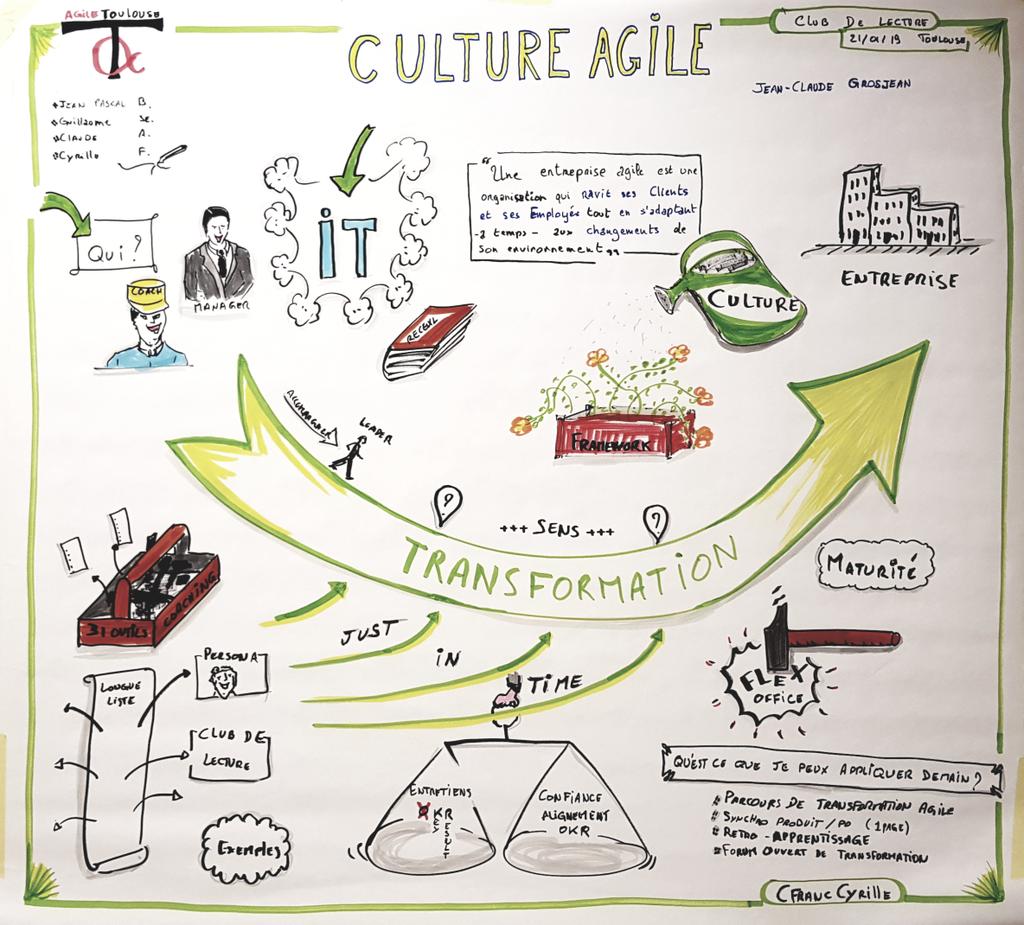 AGILE TOULOUSE
CULTURE AGILE
CLUB DE LECTURE
21/01/19 TOULOUSE
JEAN-CLAUDE GROSJEAN
#JEAN PASCAL B.
#Guillaume Se.
#CLAUDE A.
#Cyrille F.
QUI ?
COACH
MANAGER
iT
"Une entreprise agile est une
organisation qui ravit ses Clients
et ses Employés tout en s'adaptant
-à temps- aux changements de
son environnement"
RECEUIL
CULTURE
ENTREPRISE
FRAMEWORK
ACCOMPAGNER
LEADER
?
+++ SENS +++
?
TRANSFORMATION
MATURITÉ
31 OUTILS
COACHING
JUST
IN
TIME
LONGUE
LISTE
PERSONA
CLUB DE
LECTURE
EXEMPLES
FLEX
OFFICE
ENTRETIENS
O
KEY
RESULT
CONFIANCE
ALIGNEMENT
OKR
QU'EST CE QUE JE PEUX APPLIQUER DEMAIN ?
# PARCOURS DE TRANSFORMATION AGILE
# SYNCHRO PRODUIT / PO (1PAGE)
# RETRO - APPRENTISSAGE
# FORUM OUVERT DE TRANSFORMATION
CFRANCCYRILLE